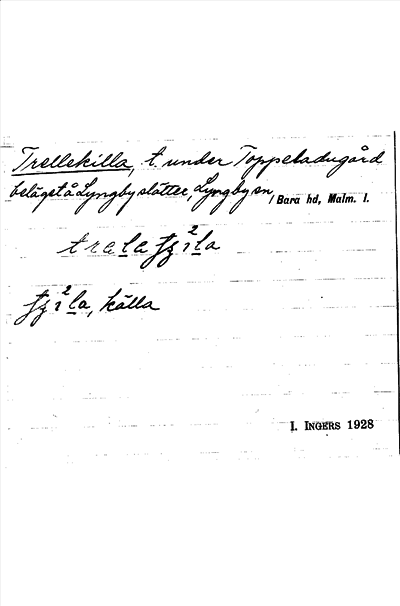 Trellekilla, t. under Toppeladugård
beläget å Lyngby slätter, Lyngby sn, Bara hd, Malm. l.
källa
I. INGERS 1928